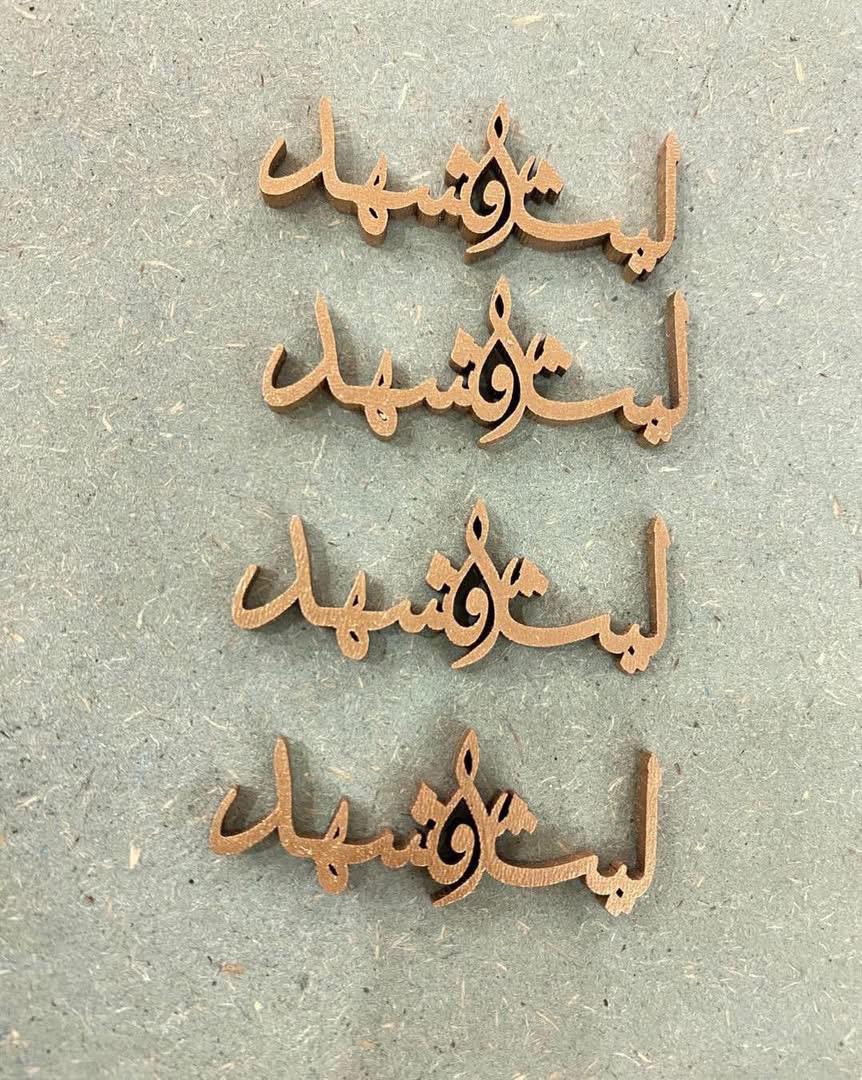 ليث و شهد
ليث و شهد
ليث و شهد
ليث و شهد